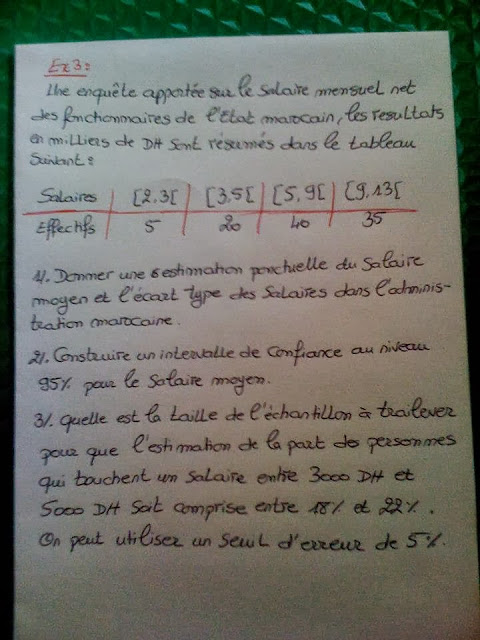 Ex3:
Une enquête apportée sur le salaire mensuel net
des fonctionnaires de l'Etat marocain, les resultats
en milliers de DH sont résumés dans le tableau
suivant:
Salaires [2,3[ [3,5[ [5,9[ [9,13[
Effectifs 5 20 40 35
1/. Donner une estimation ponctuelle du salaire
moyen et l'écart type des salaires dans l'adminis-
tration marocaine.
2/. Construire un intervalle de confiance au niveau
95% pour le salaire moyen.
3/. quelle est la taille de l'échantillon à trailever
pour que l'estimation de la part des personnes
qui touchent un salaire entre 3000 DH et
5000 DH soit comprise entre 18% et 22%.
On peut utiliser un seuil d'erreur de 5%.